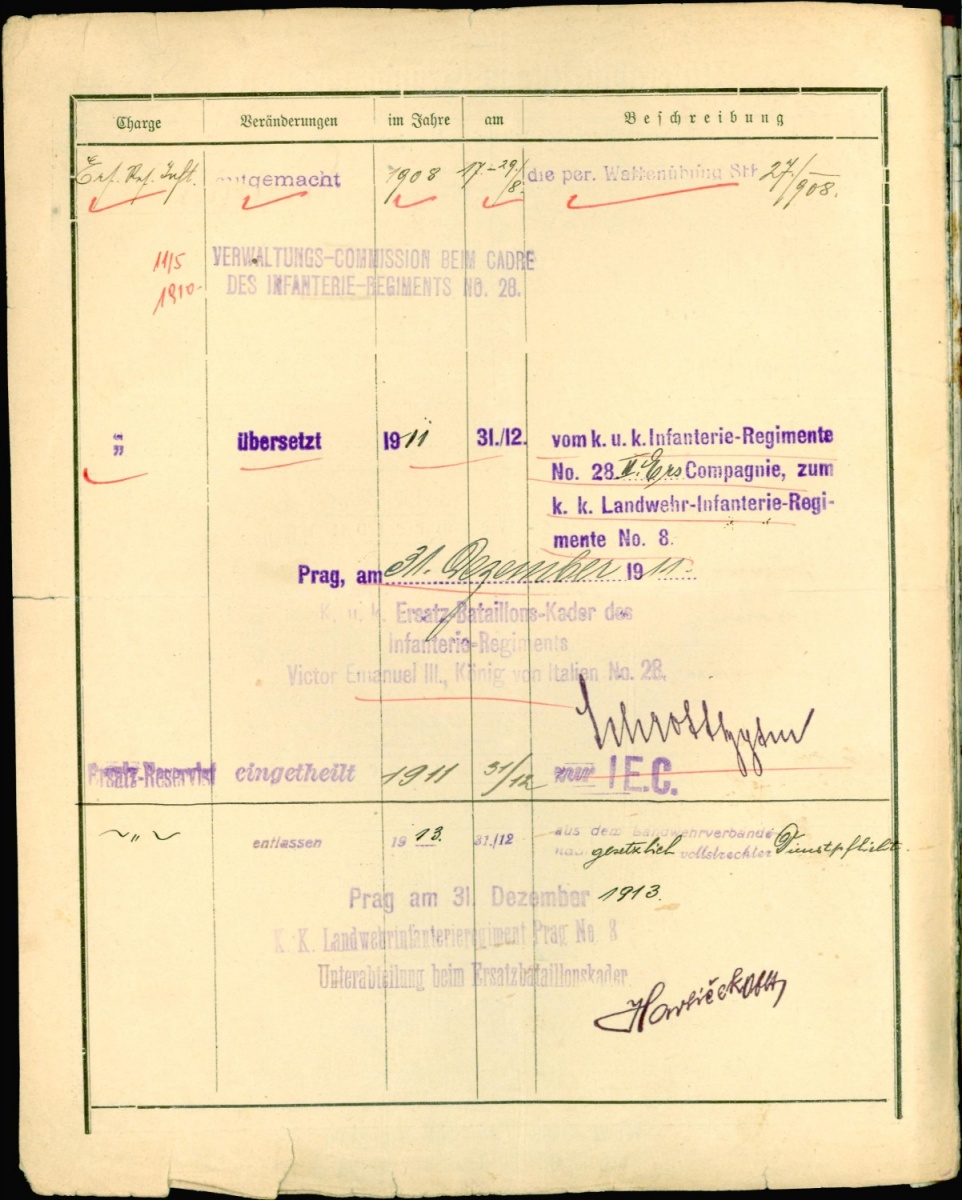 Charge Veränderungen im Jahre am Beschreibung
Ers. Res. Inft. mitgemacht 1908 17.-29./8. die per. Waffenübung Stk 27/908.
VERWALTUNGS-COMMISSION BEIM CADRE
DES INFANTERIE-REGIMENTS No. 28.
11/5
1910.
„ übersetzt 1911 31./12. vom k. u. k. Infanterie-Regimente
No. 28 II. Ers Compagnie, zum
k. k. Landwehr-Infanterie-Regi-
mente No. 8.
Prag, am 31. Dezember 1911.
K. u. k. Ersatz-Bataillons-Kader des
Infanterie-Regiments
Victor Emanuel III., König von Italien No. 28.
Ersatz-Reservist eingetheilt 1911 31/12 zur I E.C.
~„~ entlassen 1913. 31./12 aus dem Landwehrverbande
nach gesetzlich vollstreckter Dienstpflicht.
Prag am 31. Dezember 1913.
K. K. Landwehrinfanterieregiment Prag No. 8
Unterabteilung beim Ersatzbataillonskader.
Havlíček Oblt